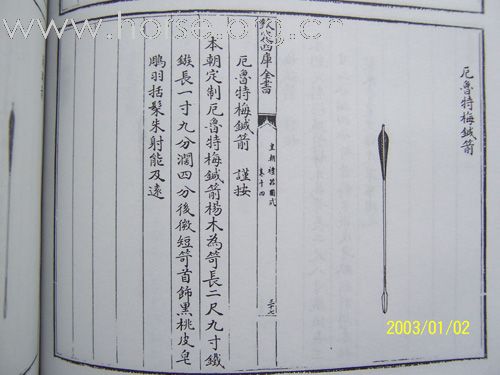 厄魯特梅鍼箭
欽定四庫全書
皇朝禮器圖式
卷十四
厄魯特梅鍼箭 謹按
本朝定制厄魯特梅鍼箭楊木為笴長二尺九寸鐵
鏃長一寸九分濶四分後微短笴首飾黑桃皮皂
鵰羽括髹朱射能及遠
2003/01/02